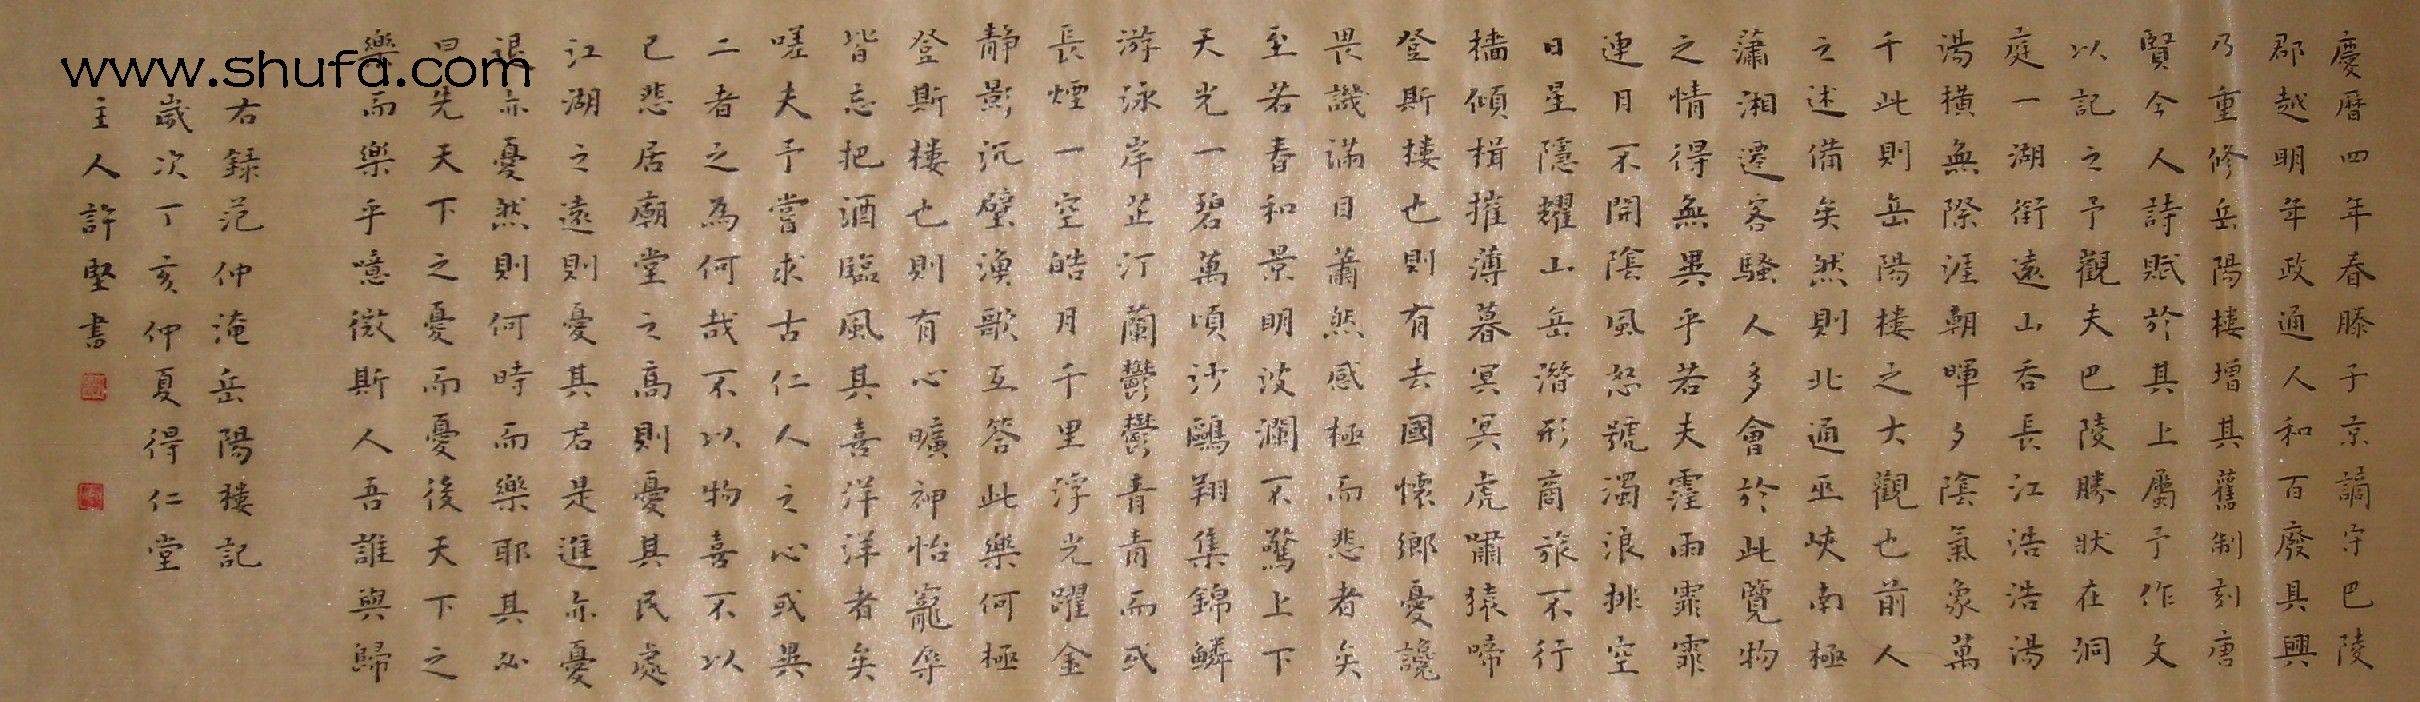 慶曆四年春滕子京謫守巴陵
郡越明年政通人和百廢具興
乃重修岳陽樓增其舊制刻唐
賢今人詩賦於其上屬予作文
以記之予觀夫巴陵勝狀在洞
庭一湖銜遠山吞長江浩浩湯
湯橫無際涯朝暉夕陰氣象萬
千此則岳陽樓之大觀也前人
之述備矣然則北通巫峽南極
瀟湘遷客騷人多會於此覽物
之情得無異乎若夫霪雨霏霏
連月不開陰風怒號濁浪排空
日星隱耀山岳潛形商旅不行
檣傾楫摧薄暮冥冥虎嘯猿啼
登斯樓也則有去國懷鄉憂讒
畏譏滿目蕭然感極而悲者矣
至若春和景明波瀾不驚上下
天光一碧萬頃沙鷗翔集錦鱗
游泳岸芷汀蘭鬱鬱青青而或
長煙一空皓月千里浮光躍金
靜影沉璧漁歌互答此樂何極
登斯樓也則有心曠神怡寵辱
皆忘把酒臨風其喜洋洋者矣
嗟夫予嘗求古仁人之心或異
二者之為何哉不以物喜不以
己悲居廟堂之高則憂其民處
江湖之遠則憂其君是進亦憂
退亦憂然則何時而樂耶其必
曰先天下之憂而憂後天下之
樂而樂乎噫微斯人吾誰與歸
右録范仲淹岳陽樓記
歲次丁亥仲夏得仁堂
主人許堅書
www.shufa.com